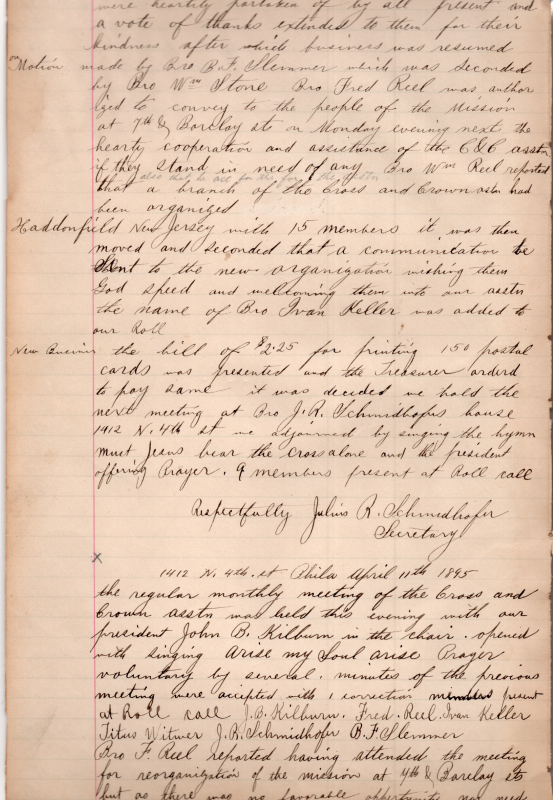 were heartily partaken of by all present and
a vote of thanks extended to them for their
kindness after which business was resumed
on Motion made by Bro B.F. Slemmer which was seconded
by Bro Wm Stone Bro Fred Reel was author
ized to convey to the people of the Mission
at 7th & Barclay sts on Monday evening next the
hearty cooperation and assistance of the C&C asstn
if they stand in need of any Bro Wm Reel reported
also that he act for the
that a branch of the Cross and Crown asstn had
been organized
Haddonfield New Jersey with 15 members it was then
moved and seconded that a communication be
Sent to the new organization wishing them
God speed and wellcoming them into our asstn
the name of Bro Ivan Keller was added to
our Roll
New Business the bill of $2.25 for printing 150 postal
cards was presented and the Treasurer orderd
to pay same it was decided we hold the
next meeting at Bro J.R. Schmidhofers house
1912 N. 4th st we adjourned by singing the hymn
must Jesus bear the cross alone and the president
offering Prayer. 9 members present at Roll call
Respectfully Julius R. Schmidhofer
Secretary
x
1912 N. 4th. st Phila April 11th 1895
the regular monthly meeting of the Cross and
Crown asstn was held this evening with our
president John B. Kilburn in the chair. opened
with singing Arise my Soul arise Prayer
voluntary by several. minutes of the previous
meeting were accepted with 1 correction present
at Roll call J.B. Kilburn. Fred. Reel. Ivan Keller
Titus Witwer J.R. Schmidhofer B.F. Slemmer
Bro F. Reel reported having attended the meeting
for reorganization of the mission at 7th & Barclay sts
but as there was no favorable opportunity nor need